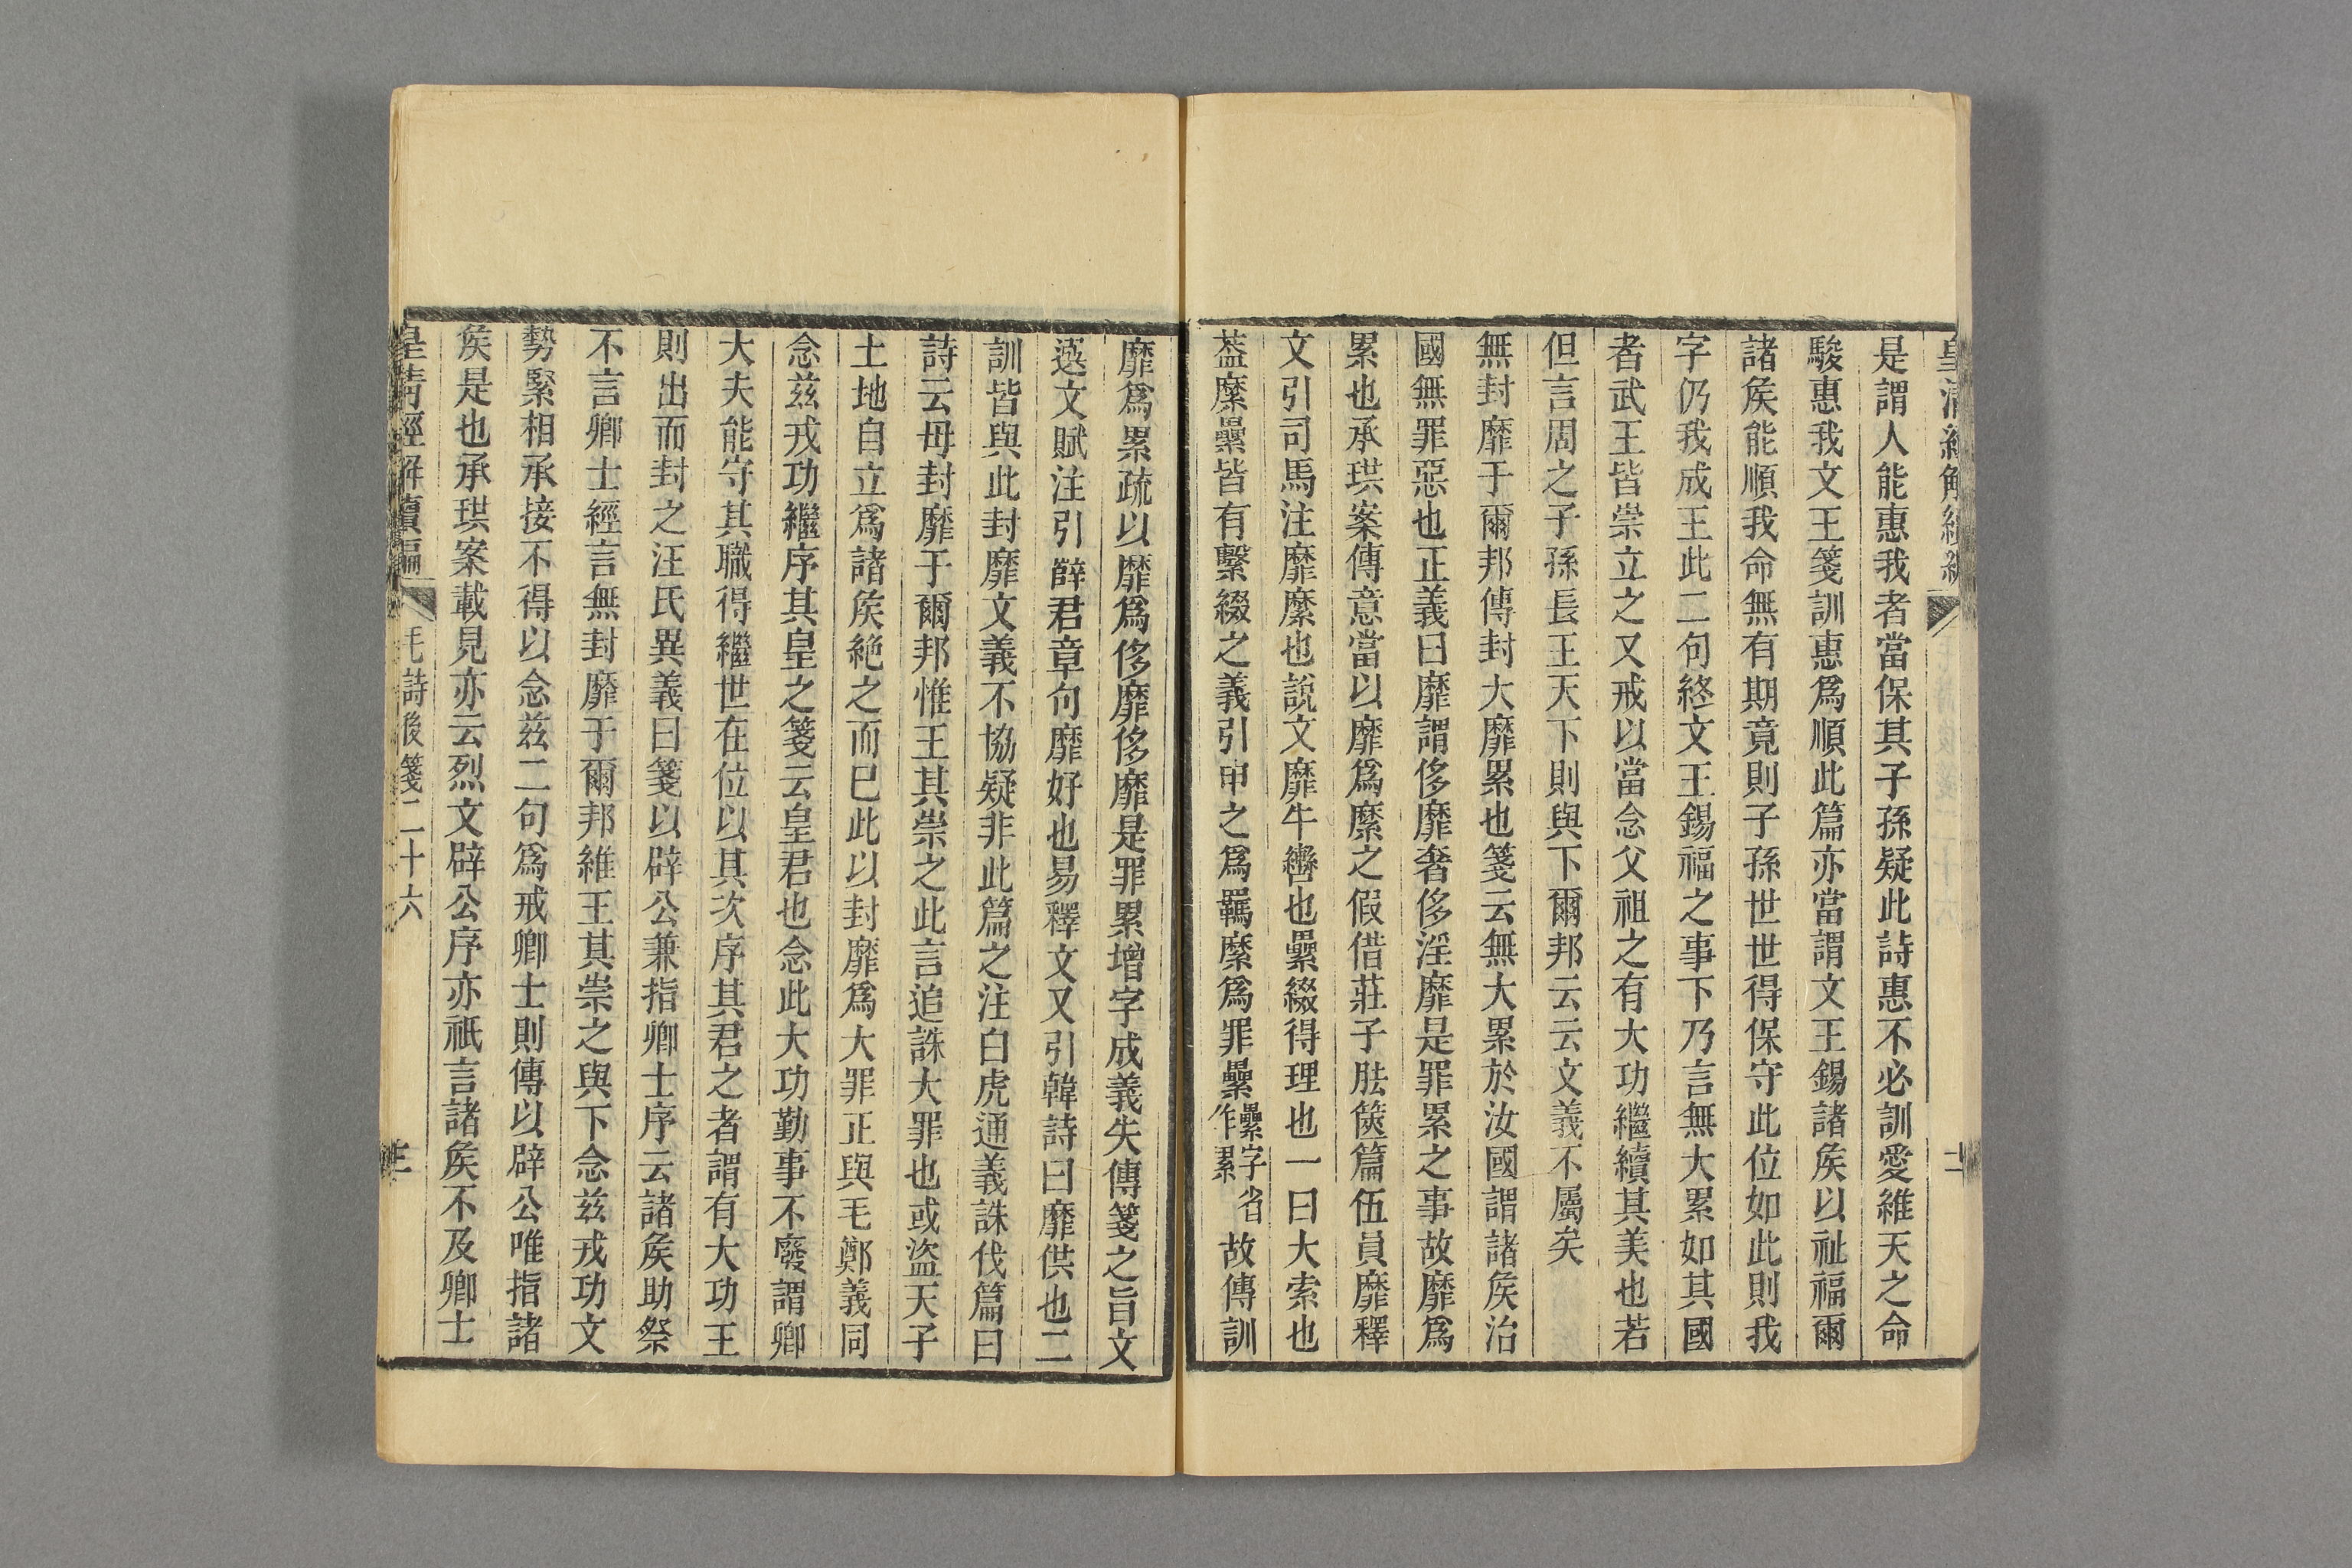 是謂人能惠我者當保其子孫疑此詩惠不必訓愛維天之命
駿惠我文王箋訓惠爲順此篇亦當謂文王錫諸矦以祉福爾
諸矦能順我命無有期竟則子孫世世得保守此位如此則我
字仍我成王此二句終文王錫福之事下乃言無大累如其國
者武王皆崇立之又戒以當念父祖之有大功繼續其美也若
但言周之子孫長王天下則與下爾邦云云文義不屬矣
無封靡于爾邦傳封大靡累也箋云無大累於汝國謂諸矦治
國無罪惡也正義曰靡謂侈靡奢侈淫靡是罪累之事故靡爲
累也承珙案傳意當以靡爲縻之假借莊子胠篋篇伍員靡釋
文引司馬注靡縻也說文縻牛轡也纍綴得理也一曰大索也
葢縻纍皆有繫綴之義引申之爲羈縻爲罪纍纍字省作累故傳訓
靡爲累疏以靡爲侈靡侈靡是罪累增字成義失傳箋之旨文
選文賦注引薛君章句靡好也易釋文又引韓詩曰靡供也二
訓皆與此封靡文義不協疑非此篇之注白虎通義誅伐篇曰
詩云毋封靡于爾邦惟王其崇之此言追誅大罪也或盜天子
土地自立爲諸矦絶之而已此以封靡爲大罪正與毛鄭義同
念茲戎功繼序其皇之箋云皇君也念此大功勤事不廢謂卿
大夫能守其職得繼世在位以其次序其君之者謂有大功王
則出而封之汪氏異義曰箋以辟公兼指卿士序云諸矦助祭
不言卿士經言無封靡于爾邦維王其崇之與下念茲戎功文
勢緊相承接不得以念茲二句爲戒卿士則傳以辟公唯指諸
矦是也承珙案載見亦云烈文辟公序亦祇言諸矦不及卿士
皇清經解續編 毛詩後箋二十六